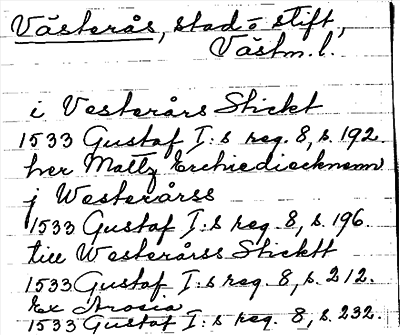 Västerås, stad o stift,
Västm. l.
i Vesterårs Stickt
1533 Gustaf I:s reg. 8, s. 192.
her Mattz Erchiediecknenn
j Westerårss
1533 Gustaf I:s reg. 8, s. 196.
till Westerårss Sticktt
1533 Gustaf I:s reg. 8, s. 212.
Ex Arosia
1533 Gustaf I:s reg. 8, s. 232.